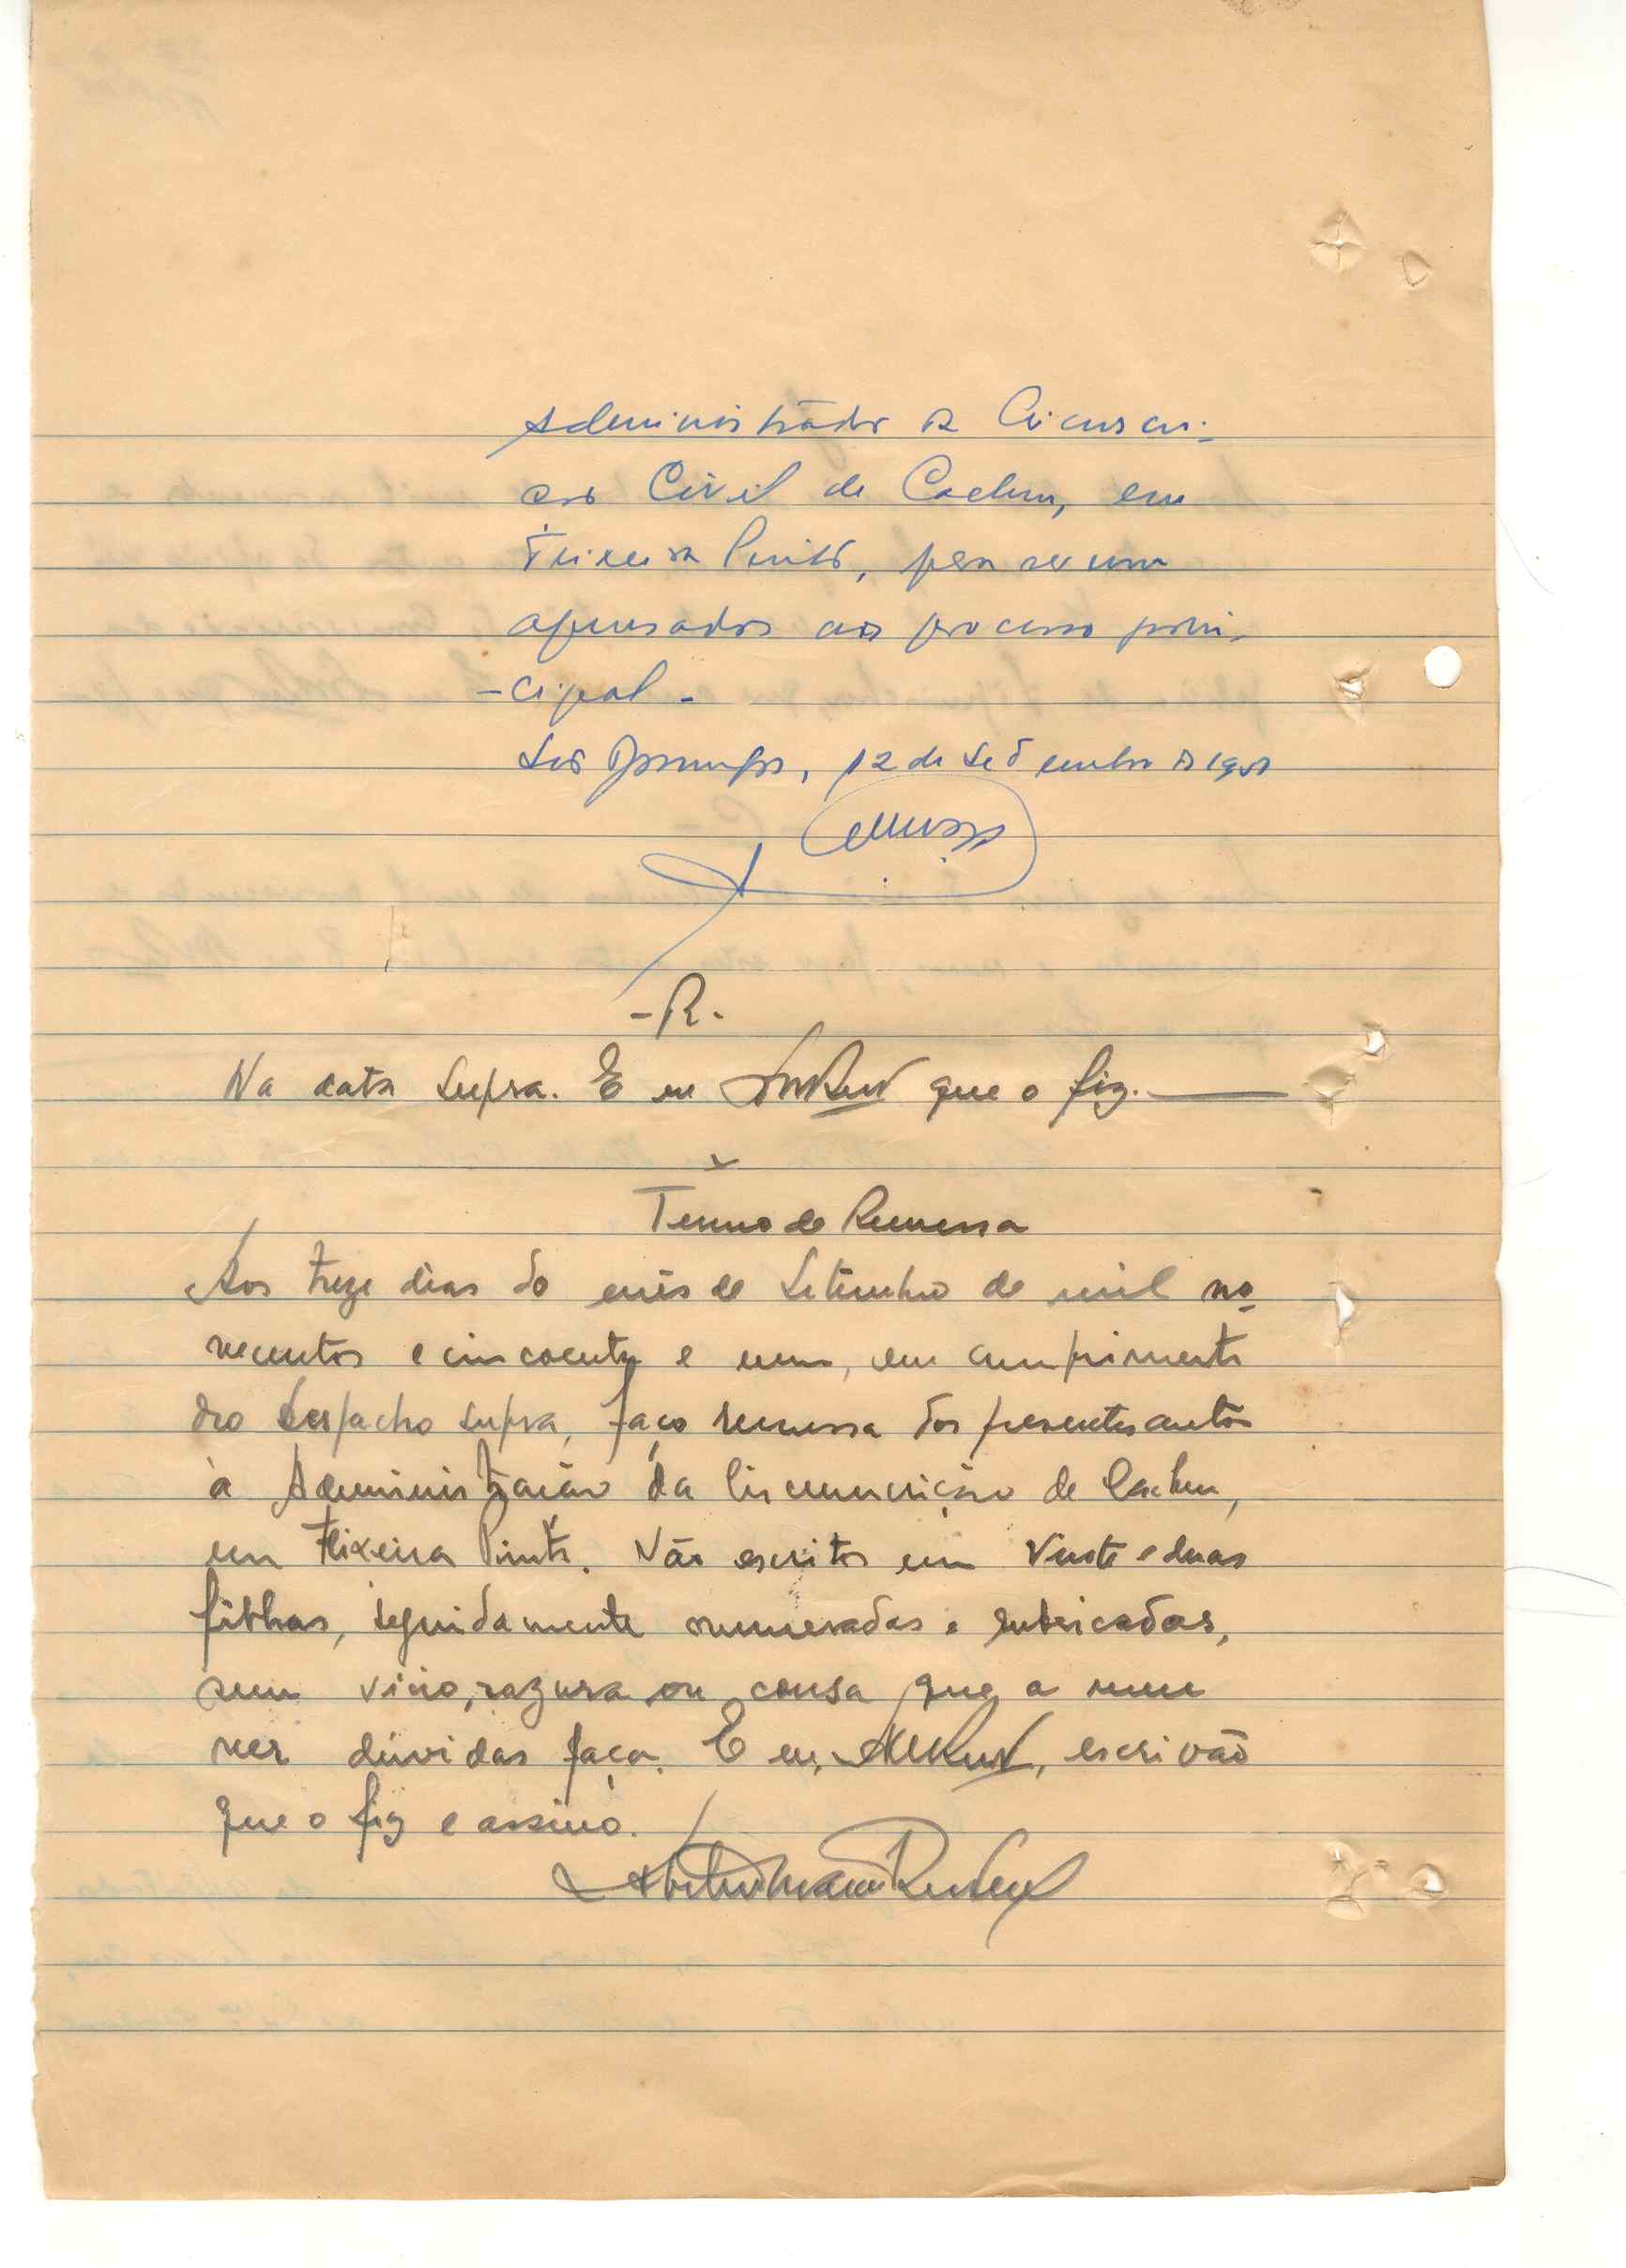 Administrador da Circunscri-
ção Civil de Cacheu, em
Teixeira Pinto, para serem
apensados ao processo prin-
-cipal -
São Domingos, 12 de Setembro de 1951
-R-
Na data supra. E eu que o fiz.
Termo de Remessa
Aos treze dias do mês de Setembro de mil no
vecentos e cincoenta e um, em cumprimento
do despacho supra, faço remessa dos presentes autos
à Administração da Circunscrição de Cacheu,
em Teixeira Pinto. Vão escritos em vinte e duas
folhas, seguidamente numeradas e rubricadas,
sem vicio, razura ou cousa que a mim
ver dúvidas faça. E eu, , escrivão
que o fiz e assino.